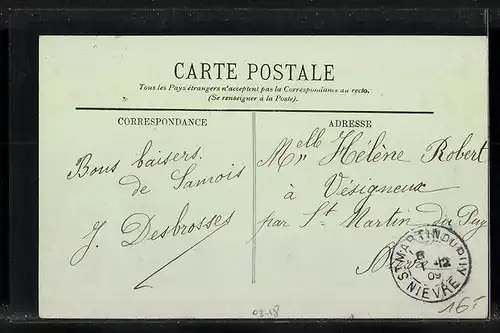 CARTE POSTALE
Tous les Pays étrangers n'acceptent pas la Correspondance au recto.
(Se renseigner à la Poste).
CORRESPONDANCE
Bons baisers.
de Samois
J. Desbrosses
ADRESSE
Melle Hélène Robert
à Vésigneux
par St Martin du Puy
ST MARTIN DU PUY
09
NIEVRE
03-18
16F